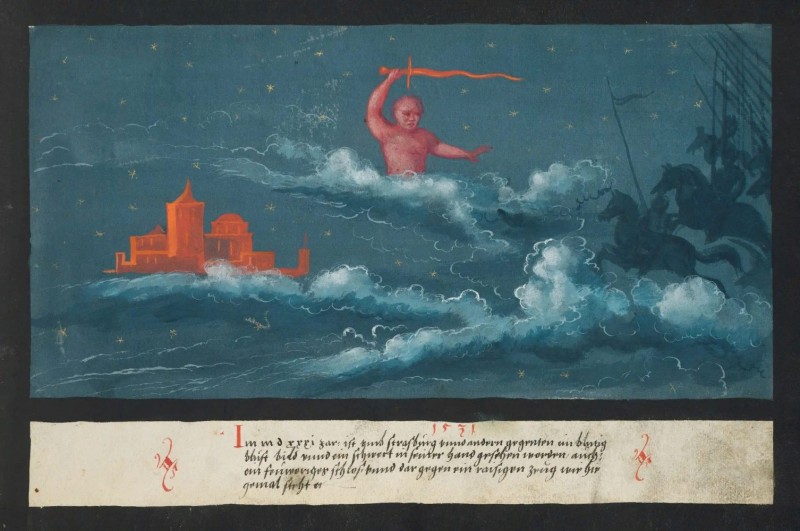 1531
Im m d xxxi Jar, ist umb strasburg unnd andern gegenten ein bluttig
brüst bild unnd ein schwert in seiner hand gesehen worden. auch
ein feuweriges schlos. unnd dar gegen ein raisigen zeug wie hie
gemal steht